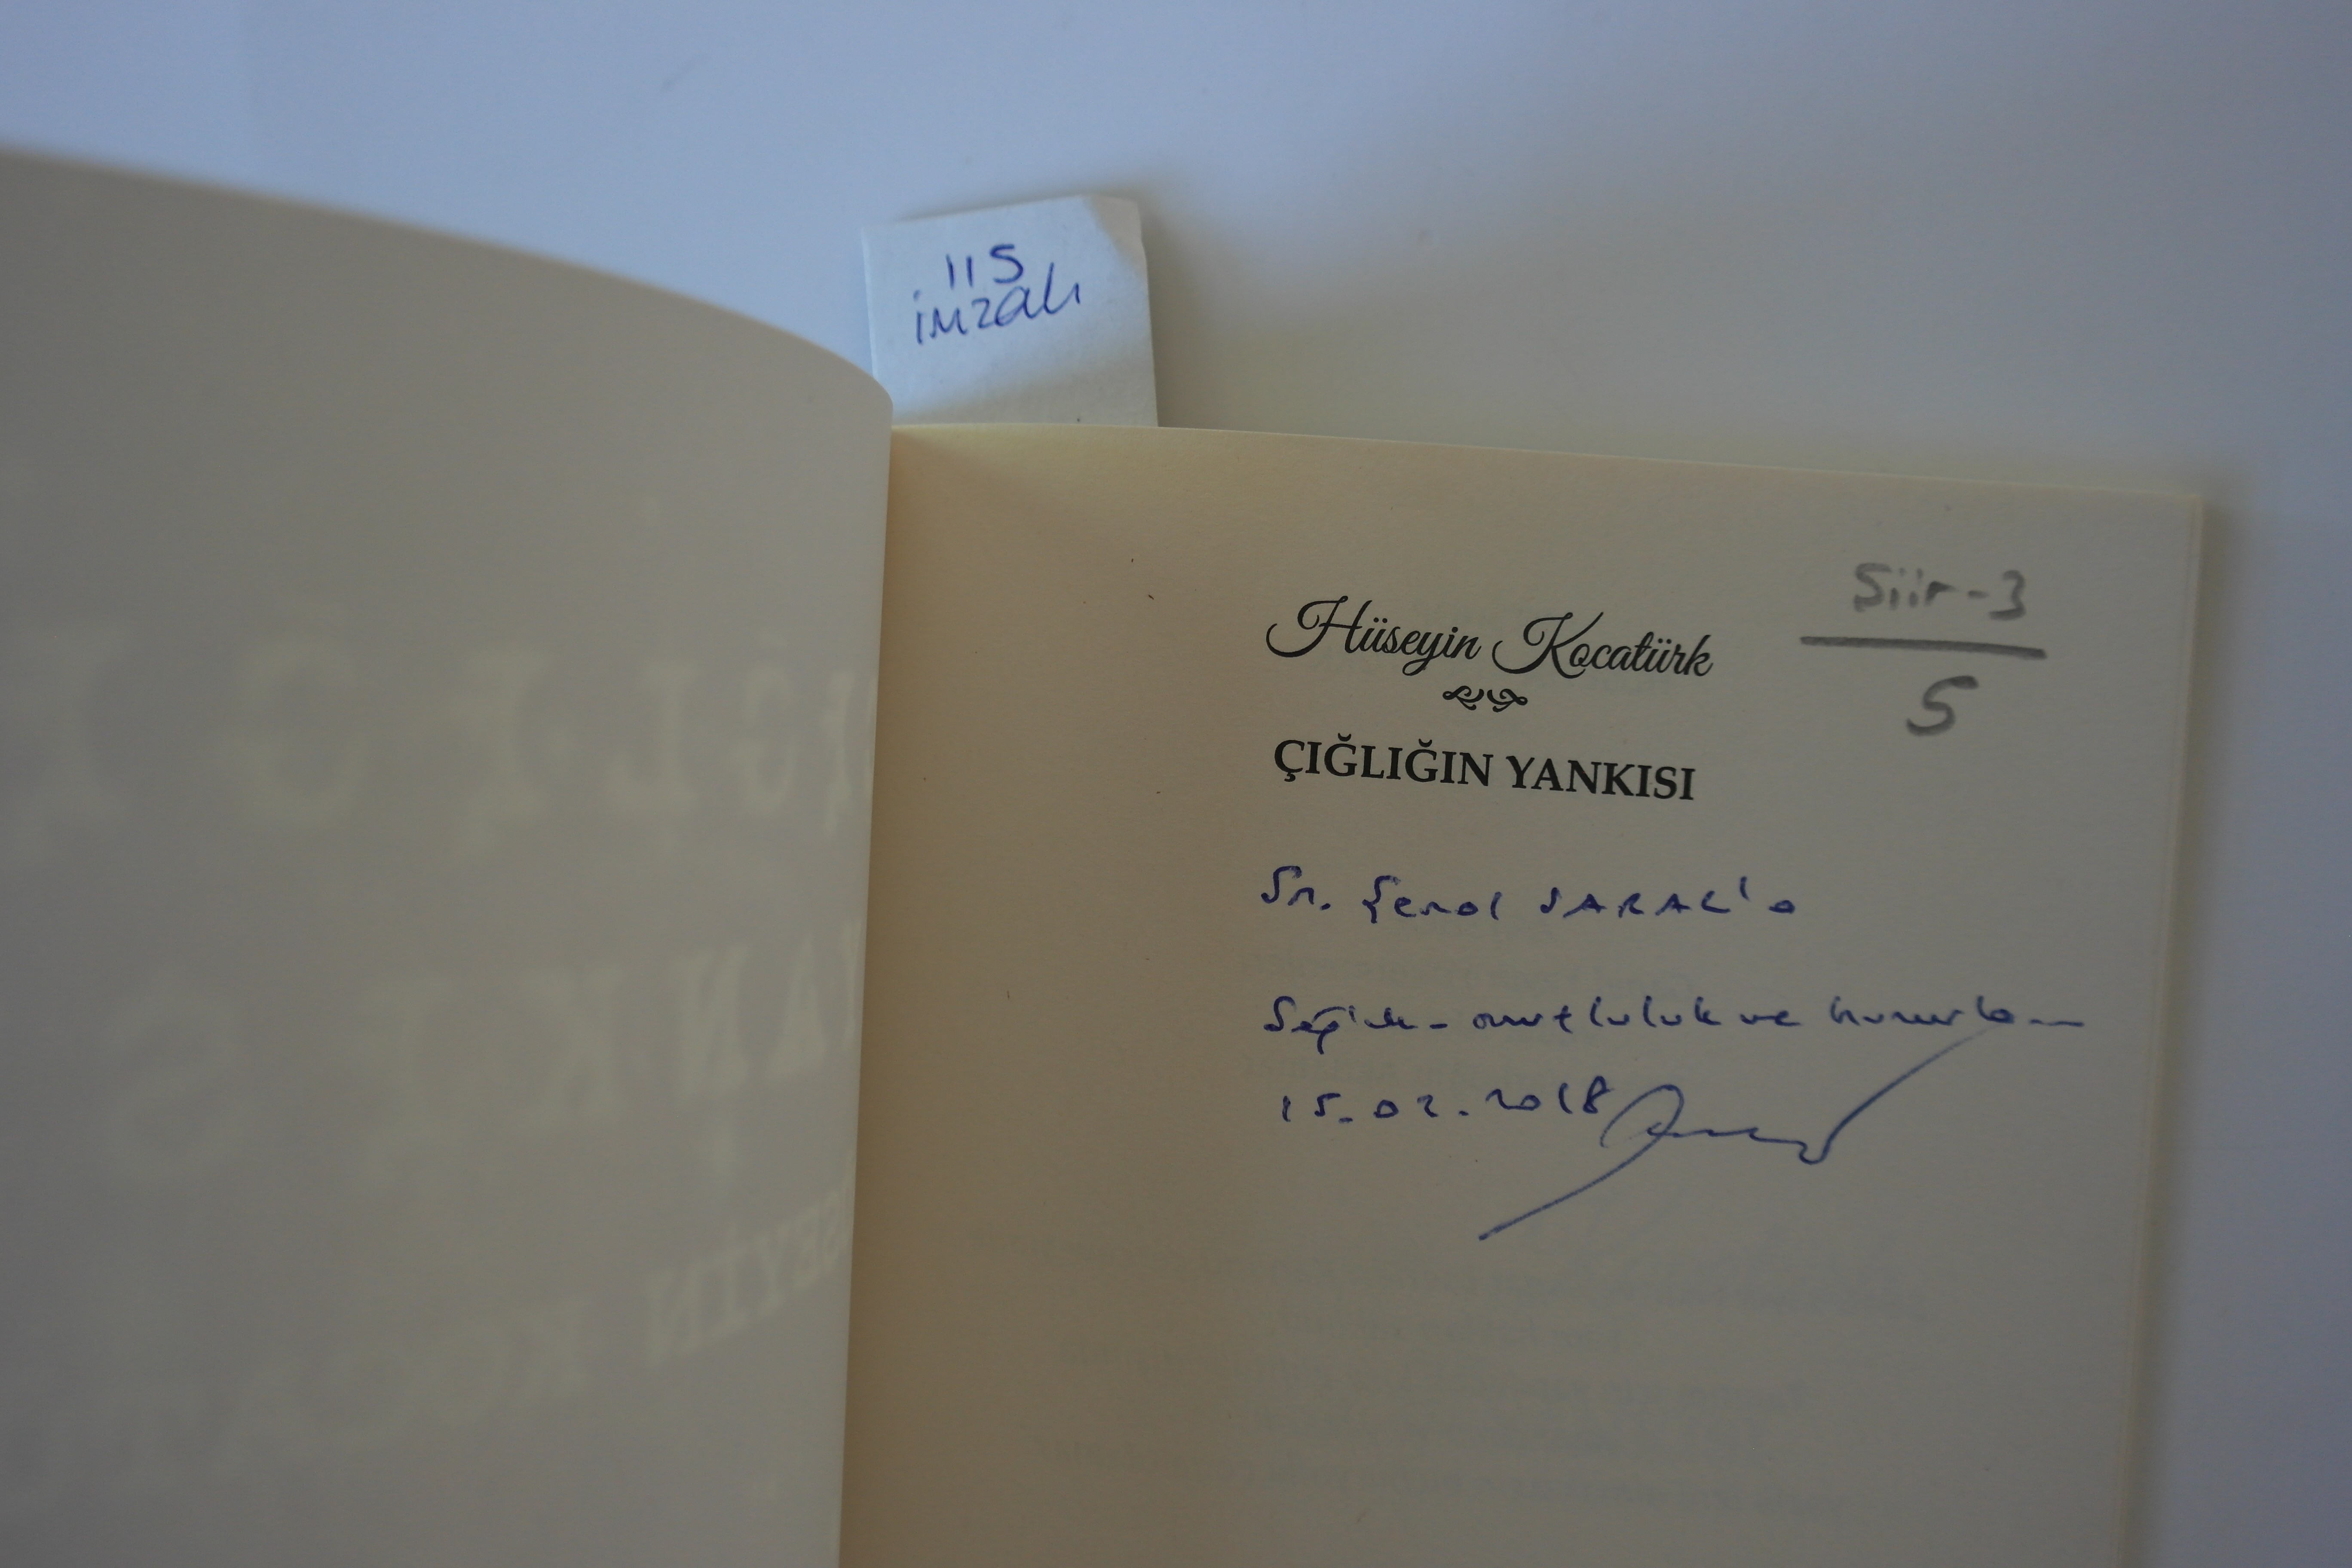 115
imzalı
Hüseyin Kocatürk
Siir-3
5
ÇIĞLIĞIN YANKISI
Sn. Şenol SARAÇ'a
Sağlık - mutluluk ve huzurla
15.02.2018